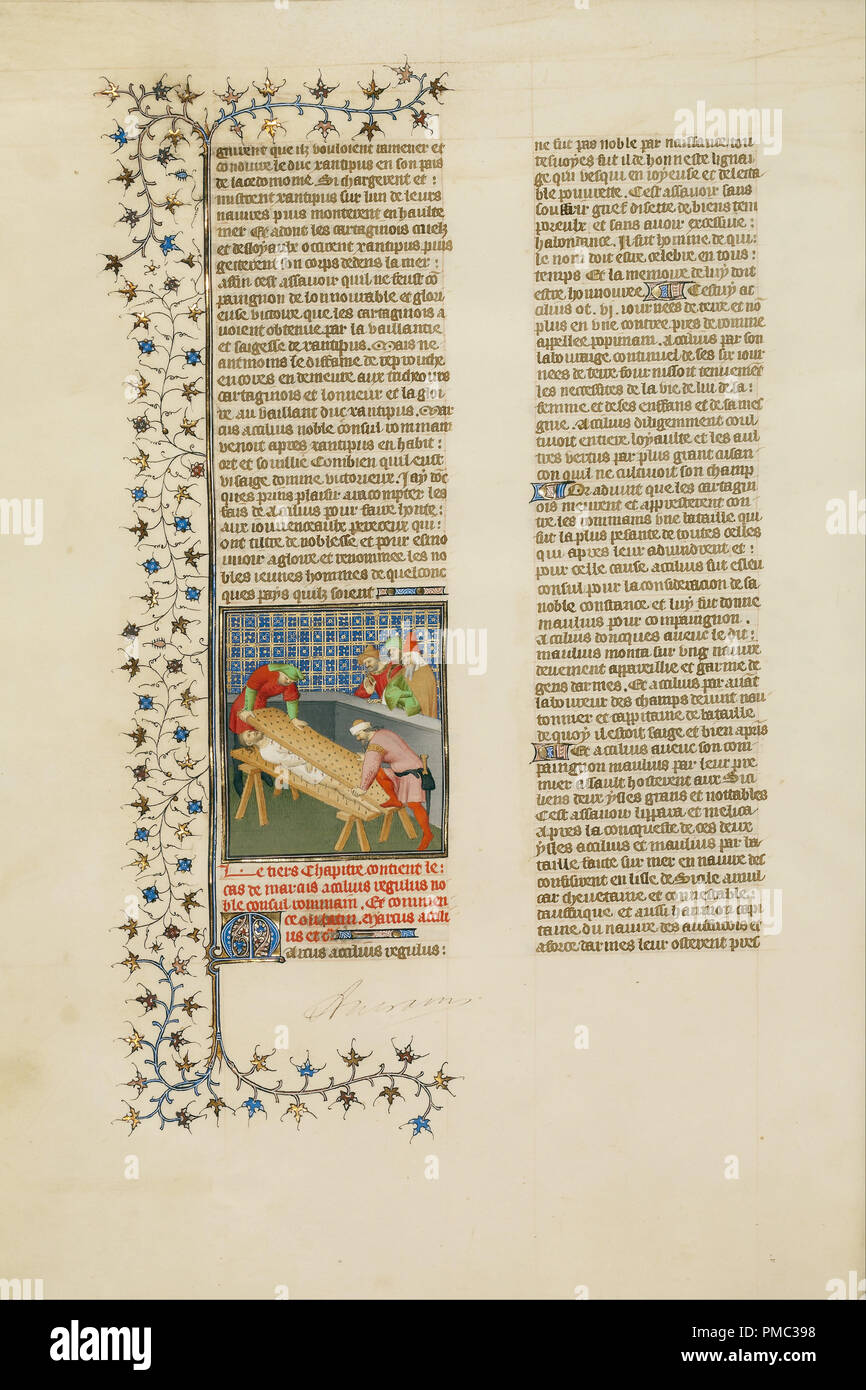 givrent que ilz vouloient ramener et
conduire le duc xantipus en son pais
de lacedomone. Si chargerent et :
mistrent xantipus sur lun de leurs
navires puis monterent en haulte
mer Et adont les cartaginois cruelz
et desloyaulx occirent xantipus puis
getterent son corps dedens la mer :
affin cest assavoir quil ne feust co
paignon de lonnourable et glori
euse victoire que les cartaginois a
voient obtenue par la vaillance
et saigesse de xantipus. Mais ne
antmoins le diffame de reprouche
encores en demeure aux
cartaginois et lonneur et la gloi
re au vaillant duc xantipus. Mar
cus acilius noble consul rommain
venoit apres xantipus en habit :
ort et soullie Combien quil eust
visaige domme victorieux. Jay doc
ques prins plaisir a racompter les
fais de acilius pour faire honte :
aux jouvenceaulx pereceux qui :
ont tiltre de noblesse et pour esmo
uuoir a gloire et renommee les no
bles jeunes hommes de quelconc
ques pays quilz soient
Le tiers Chapitre contient le :
cas de marcus acilius regulus no
ble consul rommain. Et commen
ce ou latin. Marcus acili
us et c
Marcus acilius regulus :
ne fut pas noble par naissance tou
tesuoyes fut il de honneste lignai
ge qui vesqui en joyeuse et delecta
ble pouurete. Cest assavoir sans
souffrir grief disette de biens tem
poreulx et sans avoir excessive :
habondance. Il fut homme de qui :
le nom doit estre celebre en tous :
temps Et la memoire de luy doit
estre honnouree Cestuy at
cilius ot .vi. journees de terre et no
plus en vne contree pres de romme
appellee popinam. Acilius par son
labouraige continuel de ses six jour
nees de terre fournissoit tenuement
les necessites de la vie de lui de sa :
femme et de ses enffans et de sa mes
gnie. Acilius diligemment coul
tiuoit entiere loyaulte et les aul
tres vertus par plus grant cusan
con quil ne cultivoit son champ
Or aduint que les cartagin
ois meurent et appresterent con
tre les rommains vne bataille qui
fut la plus pesante de toutes celles
qui apres leur aduindrent et :
pour celle cause acilius fut esleu
consul pour la consideracion de sa
noble constance et luy fut donne
maulius pour compaignon.
Acilius doncques auecc le dit :
maulius monta sur vng navire
deuement appareille et garme de
gens darmes. Et acilius par auat
laboureur des champs deuint nau
tonnier et cappitaine de bataille
de quoy il estoit saige et bien apris
Et acilius auecc son com
paignon maulius par leur pre
mier assault hosterent aux Sici
liens deux ysles grans et nottables
Cest assavoir lippara et melica
Apres la conqueste de ces deux
ysles acilius et maulius par ba
taille faicte sur mer en navire des
confirent en lisle de Sicile amul
car cheuetaine et connestable
dauffrique et aussi hannon capi
taine du navire des auffricois et
a force darmes leur osterent pres
alamy
Image ID: PMC398
www.alamy.com